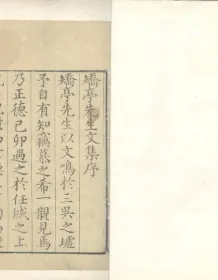 矯亭先生文集序
矯亭先生以文鳴於三吳之墟
予自有知竊慕之希一覯見焉
乃正德己卯遇之於任城之上